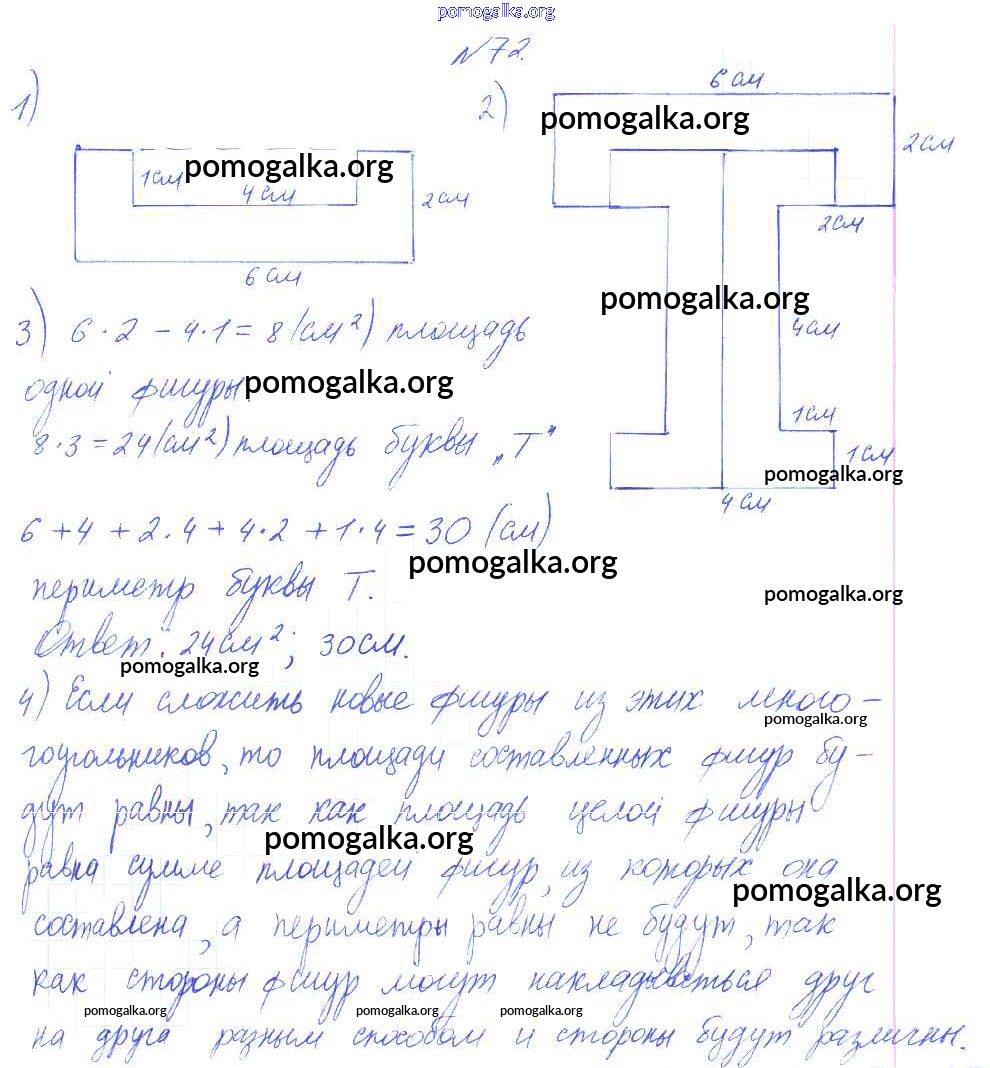 pomogalka.org
№72.
1)
1см
4см
2см
6см
pomogalka.org
2)
6см
pomogalka.org
2см
2см
pomogalka.org
4см
1см
1см
pomogalka.org
4см
3) 6·2 - 4·1 = 8 (см²) площадь
одной фигуры.
pomogalka.org
8·3 = 24 (см²) площадь буквы „Т"
6 + 4 + 2·4 + 4·2 + 1·4 = 30 (см)
pomogalka.org
периметр буквы Т.
pomogalka.org
Ответ: 24см²; 30см.
pomogalka.org
4) Если сложить новые фигуры из этих много-
pomogalka.org
гоугольников, то площади составленных фигур бу-
дут равны, так как площадь целой фигуры
pomogalka.org
равна сумме площадей фигур, из которых она
pomogalka.org
составлена, а периметры равны не будут, так
как стороны фигур могут накладываться друг
pomogalka.org
pomogalka.org
pomogalka.org
на друга разным способом и стороны будут различны.